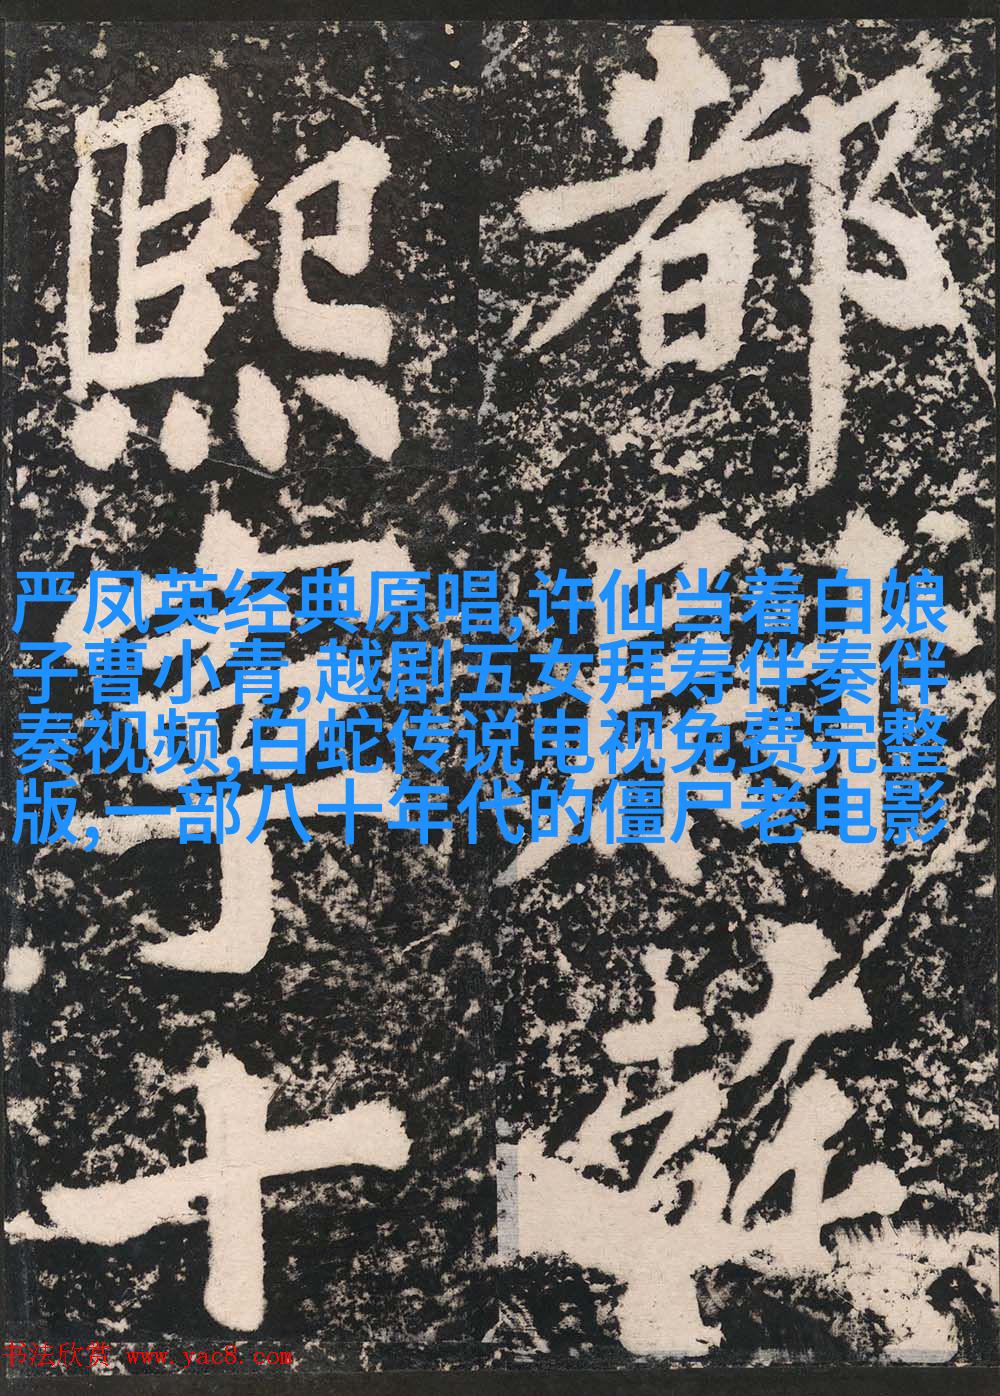 都
熙寧十
严凤英经典原唱,许仙当着白娘
子曹小青,越剧五女拜寿伴奏伴
奏视频,白蛇传说电视免费完整
版,一部八十年代的僵尸老电影
书法欣赏 www.yac8.com